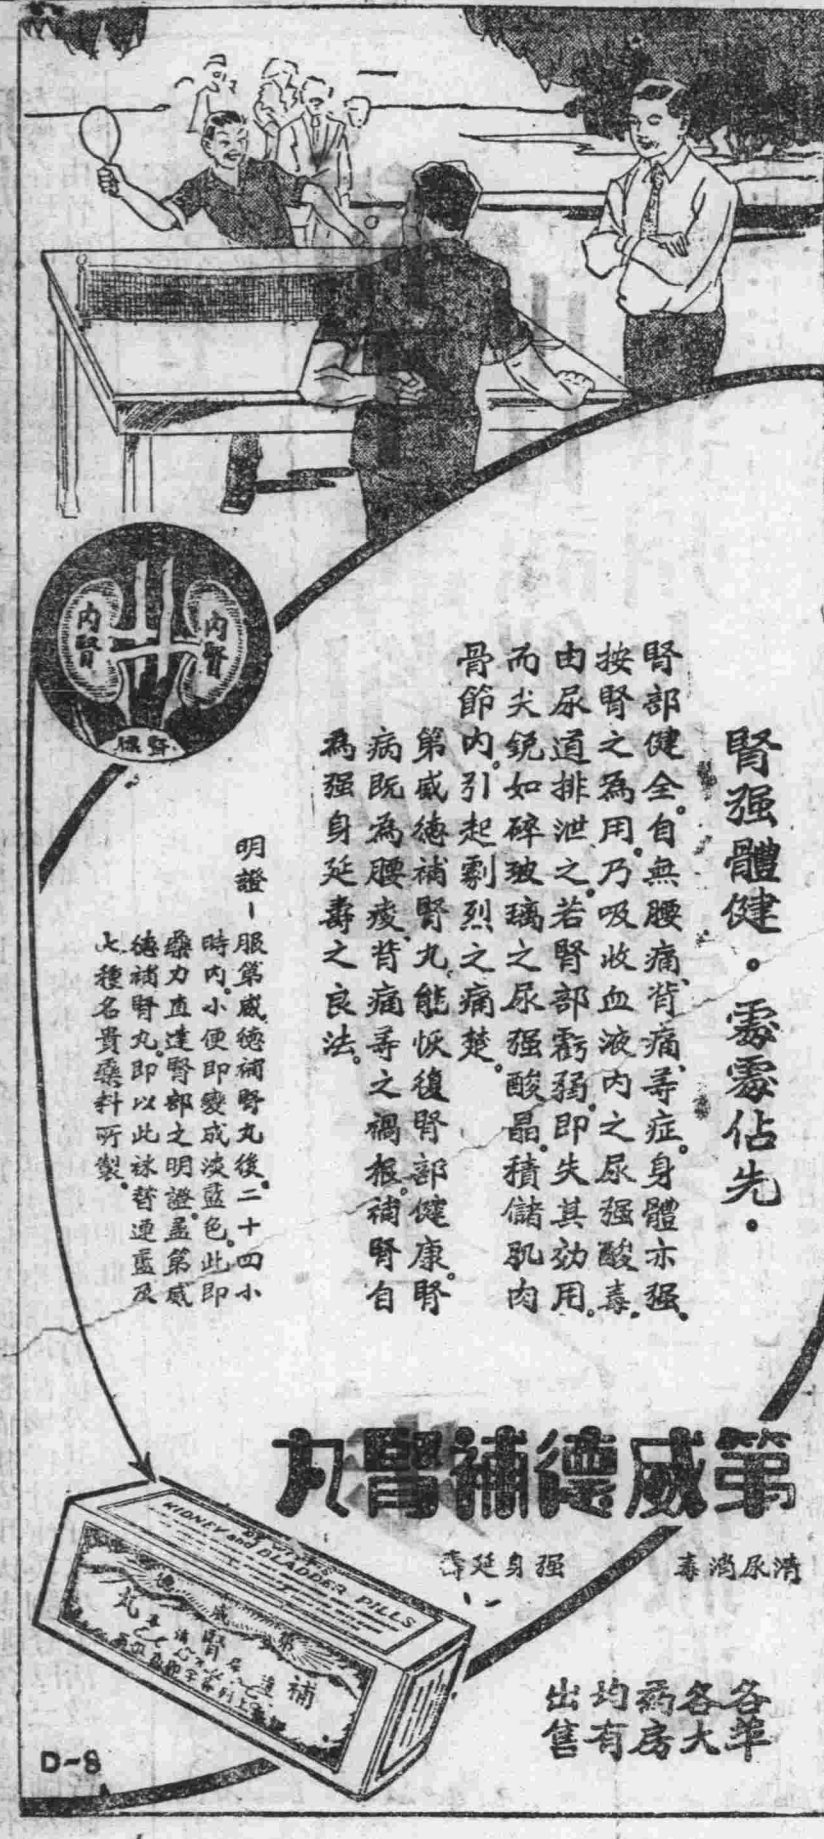 腎强體健。處處佔先。
腎部健全。自無腰痛、背痛、等症。身體亦强。
按腎之為用。乃吸收血液内之尿强酸毒。
由尿道排泄之。若腎部虧弱。即失其効用。
而尖銳如碎玻璃之尿强酸晶。積儲肌肉
骨節内。引起劇烈之痛楚。
第威德補腎丸、能恢復腎部健康。腎
病既為腰痠、背痛等之禍根。補腎自
為强身延壽之良法。
明證－服第威德補腎丸後。二十四小
時内。小便即變成淡藍色。此即
藥力直達腎部之明證。盖第威
德補腎丸。即以此秘替連藍及
七種名貴藥料所製。
内腎
内腎
第威德補腎丸
清尿消毒
强身延壽
KIDNEY and BLADDER PILLS
補
腎
丸
各埠
各大
药房
均有
出售
D-8